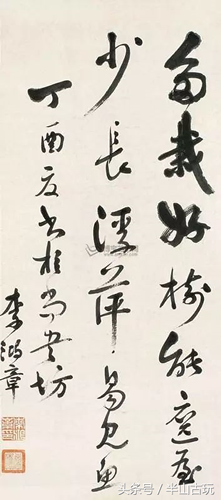 多栽好樹能遮屋
少長浮萍易見魚
丁酉夏書於尚書坊
李鴻章
头条号 / 半山古玩